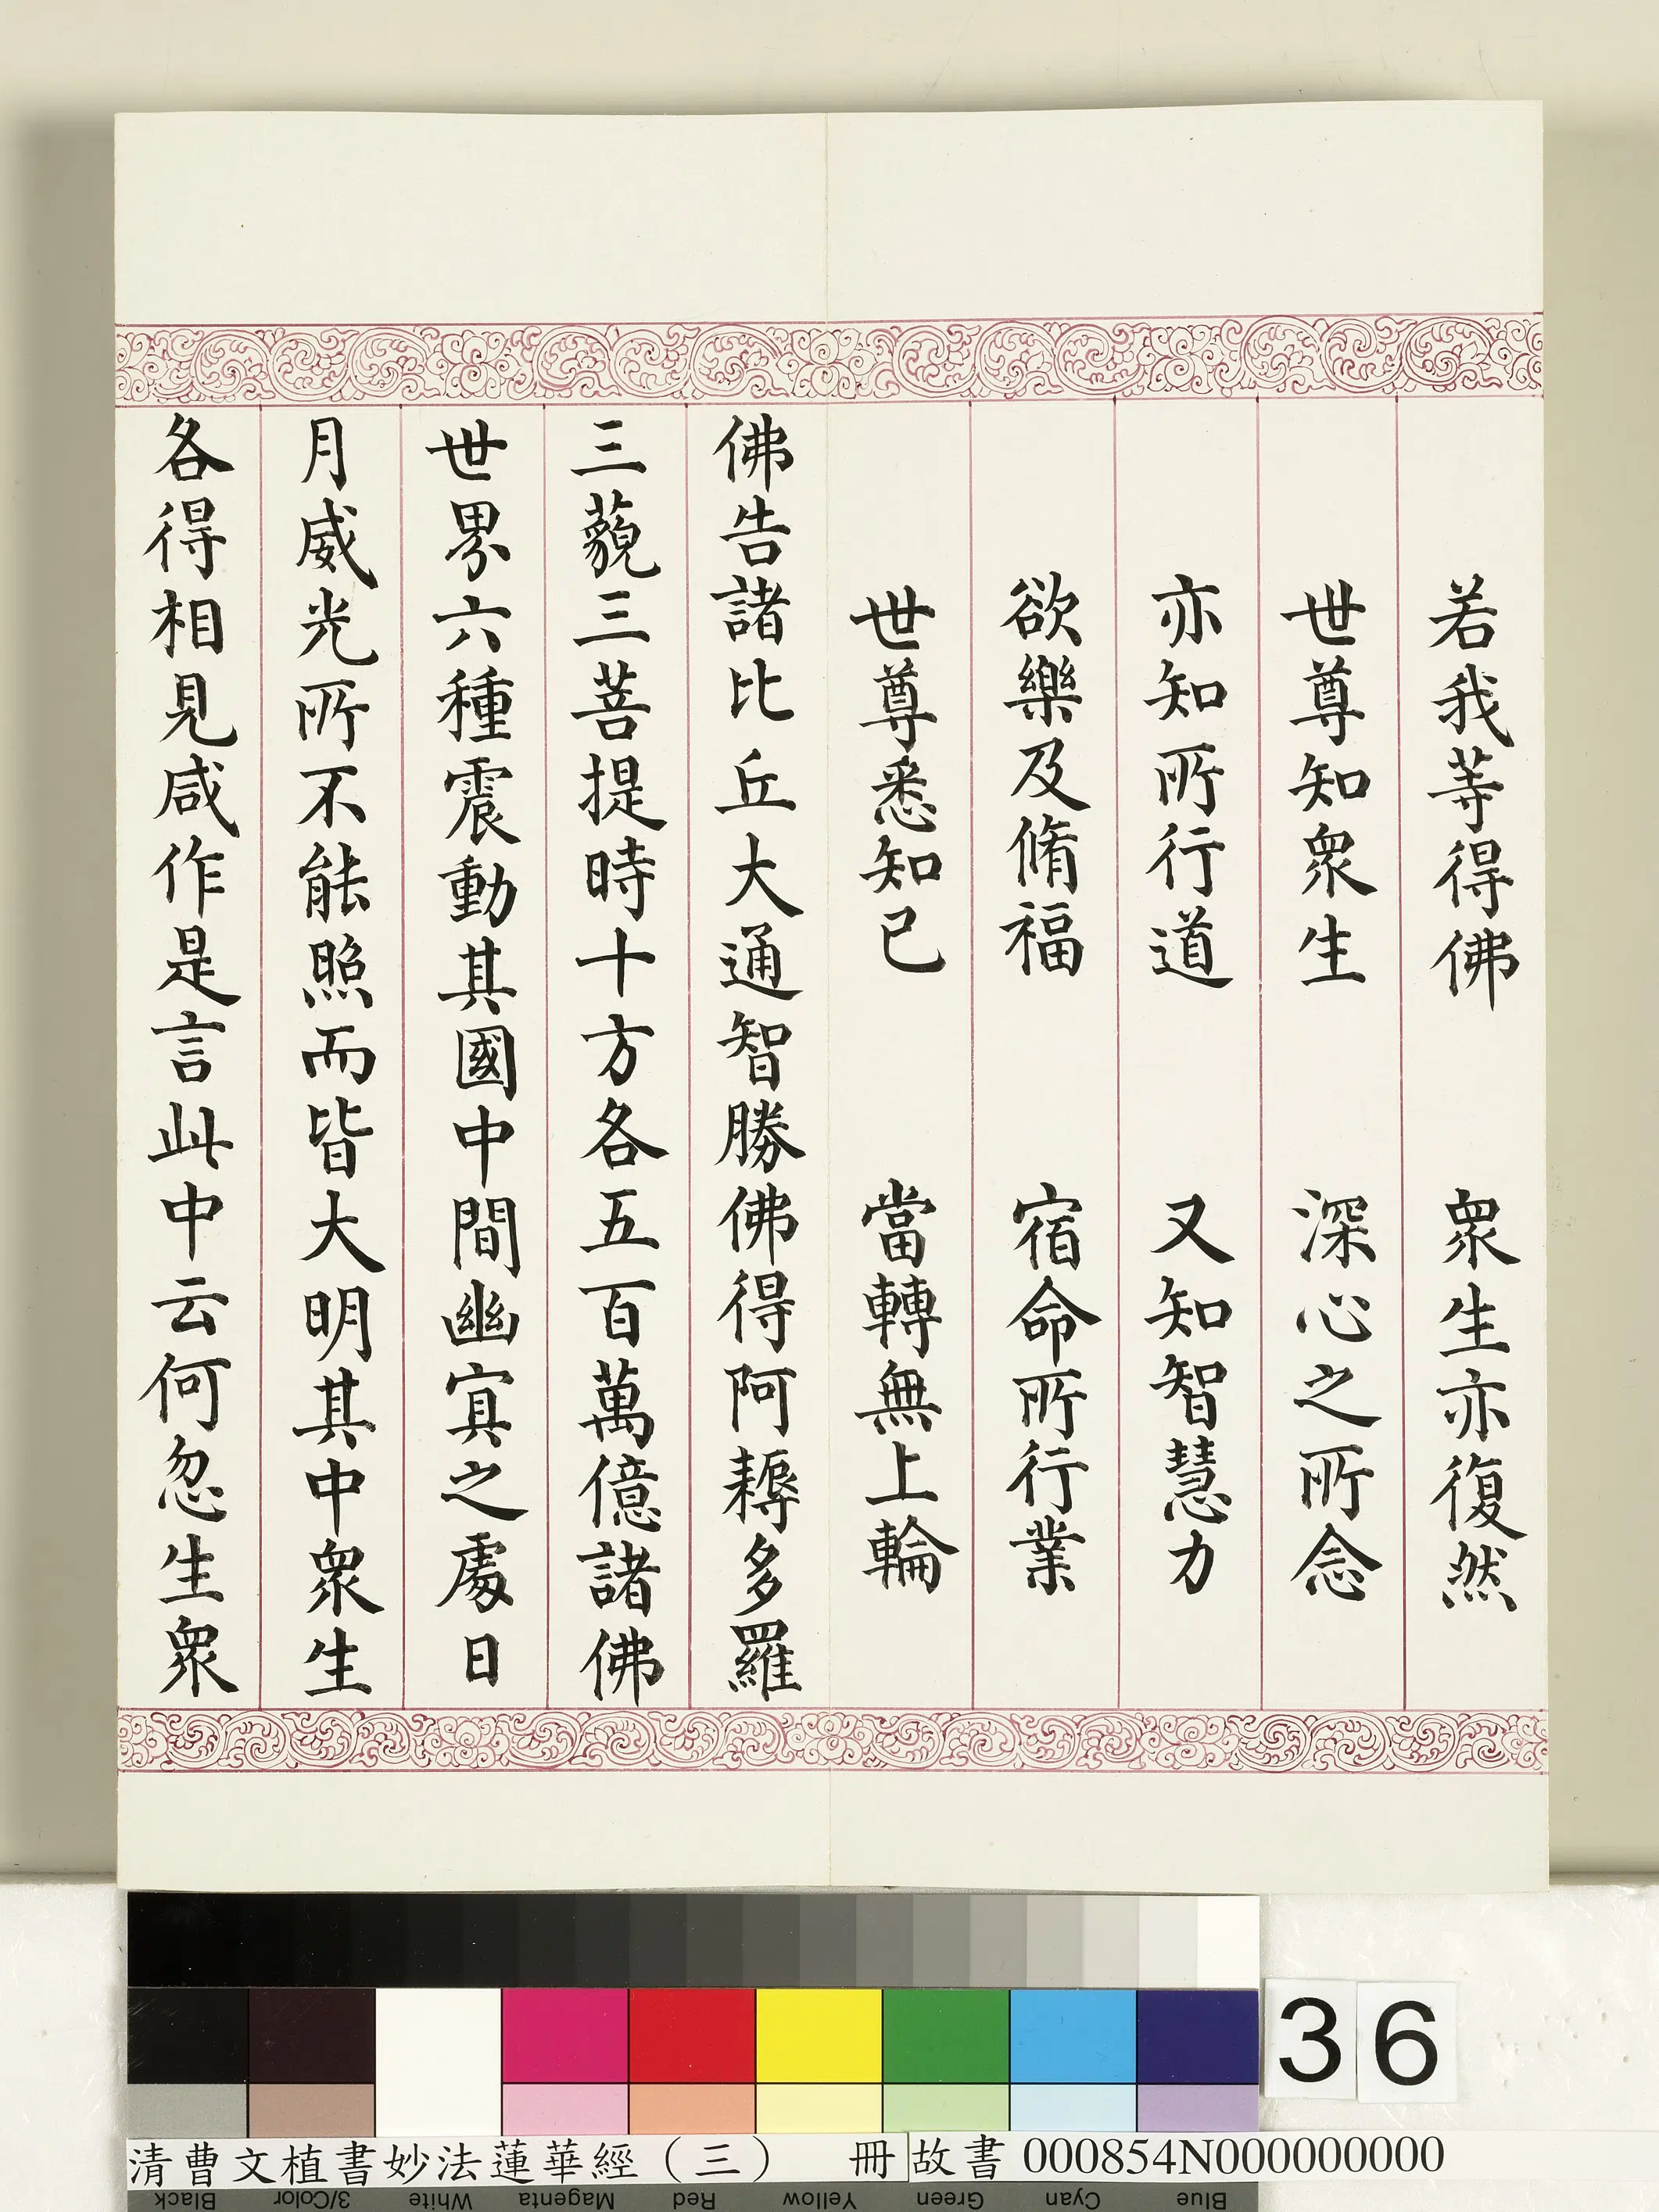 若我等得佛　衆生亦復然
世尊知衆生　深心之所念
亦知所行道　又知智慧力
欲樂及脩福　宿命所行業
世尊悉知已　當轉無上輪
佛告諸比丘大通智勝佛得阿耨多羅
三藐三菩提時十方各五百萬億諸佛
世界六種震動其國中間幽㝠之處日
月威光所不能照而皆大明其中衆生
各得相見咸作是言此中云何忽生衆
36
清曹文植書妙法蓮華經（三）　冊 故書 000854N000000000
Black 3/Color White Magenta Red Yellow Green Cyan Blue